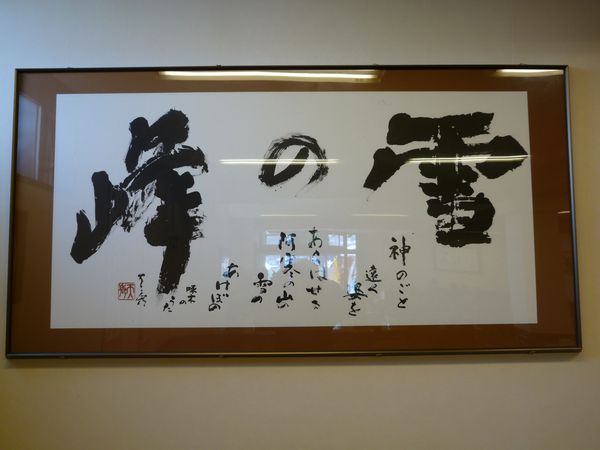 雪の峰
神のごと
遠く姿を
あらはせる
阿寒の山の
雪の
あけぼの
啄木
のうた